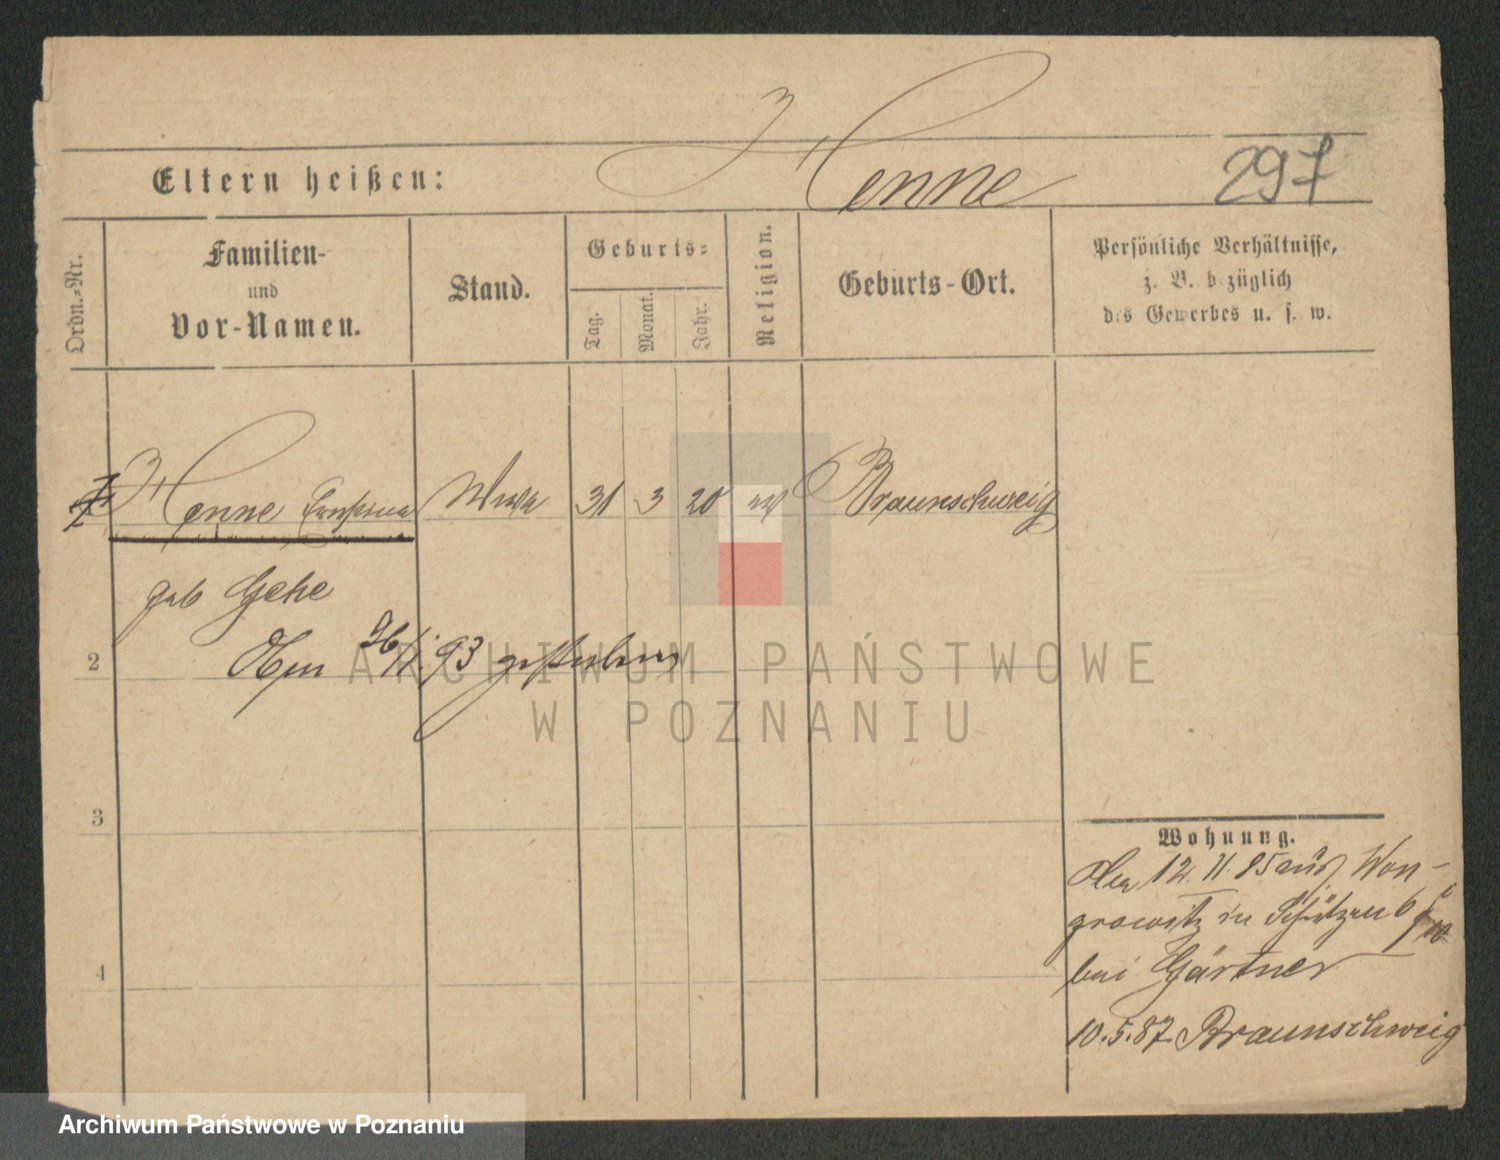 Henne
297
Eltern heißen:
Ordn.-Nr.
Familien-
und
Vor-Namen.
Stand.
Geburts-
Tag.
Monat.
Jahr.
Religion.
Geburts-Ort.
Persönliche Verhältnisse,
z. B. bezüglich
des Gewerbes u. s. w.
Henne Ernstina Wwe 31 3 20 ev Braunschweig
geb Gehe
2
26/1. 93 gestorben
ARCHIWUM PAŃSTWOWE
W POZNANIU
3
Wohnung.
12. 11. 85 aus Won-
growitz in Schützen 6
4
bei Gärtner
10. 5. 87. Braunschweig
Archiwum Państwowe w Poznaniu